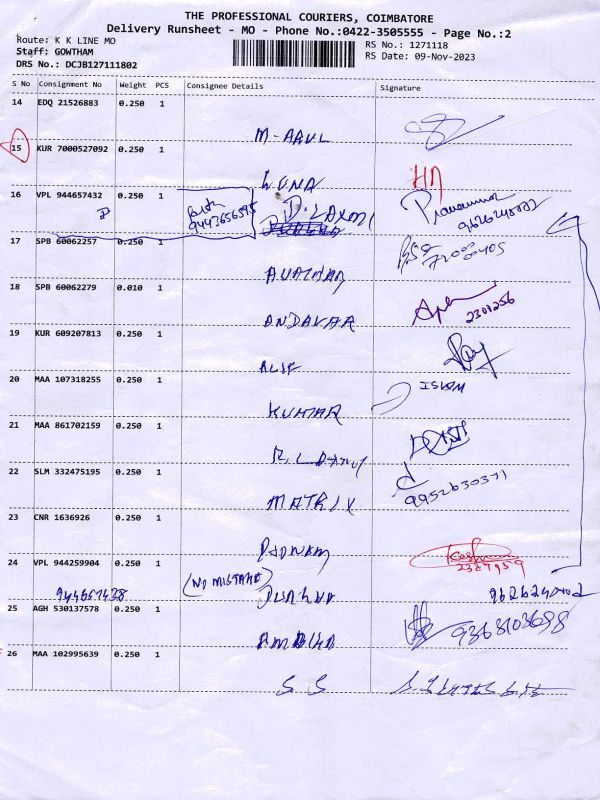 THE PROFESSIONAL COURIERS, COIMBATORE
Delivery Runsheet - MO - Phone No.:0422-3505555 - Page No.:2
Route: K K LINE MO
Staff: GOWTHAM
DRS No.: DCJB127111802
RS No.: 1271118
RS Date: 09-Nov-2023
S No Consignment No Weight PCS Consignee Details Signature
14 EDQ 21526883 0.250 1
M-ARUL
15 KUR 7000527092 0.250 1
LUNA
16 VPL 944657432 0.250 1
9443656595
D. LAXMI
9626248002
17 SPB 60062257 0.250 1
18 SPB 60062279 0.010 1
ANDAVAR
2307256
19 KUR 609207813 0.250 1
20 MAA 107318255 0.250 1
KUMAR
21 MAA 861702159 0.250 1
22 SLM 332475195 0.250 1
MATRIX
9952630371
23 CNR 1636926 0.250 1
24 VPL 944259904 0.250 1
(NO MISTAKE)
25 AGH 530137578 0.250 1
9363103698
26 MAA 102995639 0.250 1
S S